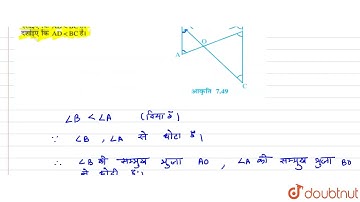 दर्शाइए कि AD < BC है।
O
A
C
आकृति 7.49
∠B < ∠A (दिया है)
∵ ∠B , ∠A से छोटा है।
∴ ∠B की सम्मुख भुजा AO , ∠A की सम्मुख भुजा BO
से छोटी है।
doubtnut